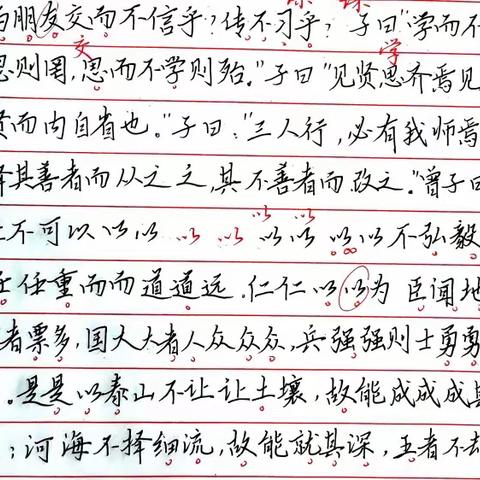 朋友交而不信乎？传不习乎？子曰"学而不
思则罔，思而不学则殆。"子曰"见贤思齐焉见
贤而内自省也。"子曰："三人行，必有我师焉
择其善者而从之之，其不善者而改之。"曾子曰
不可以以以 以 以 以以 以以不弘毅
任任重而而道道远．仁仁以以为 臣闻地
者票多，国大大者人众众众，兵强强则士勇勇
。是是以泰山不让让土壤，故能成成成其
；河海不择细流，故能就其深，王者不却